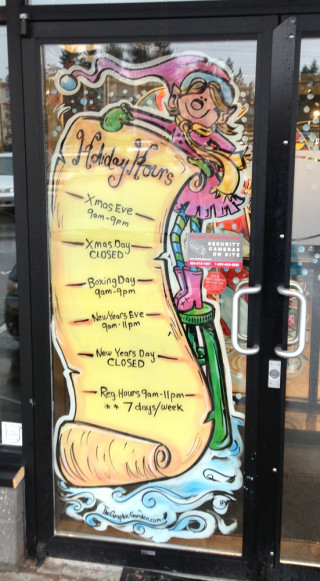 Holiday Hours
Xmas Eve
9am-9pm
Xmas Day
CLOSED
Boxing Day
9am-9pm
New Years Eve
9am-11pm
New Years Day
CLOSED
Reg. Hours 9am-11pm
** 7 days/week
SECURITY
CAMERAS
ON SITE